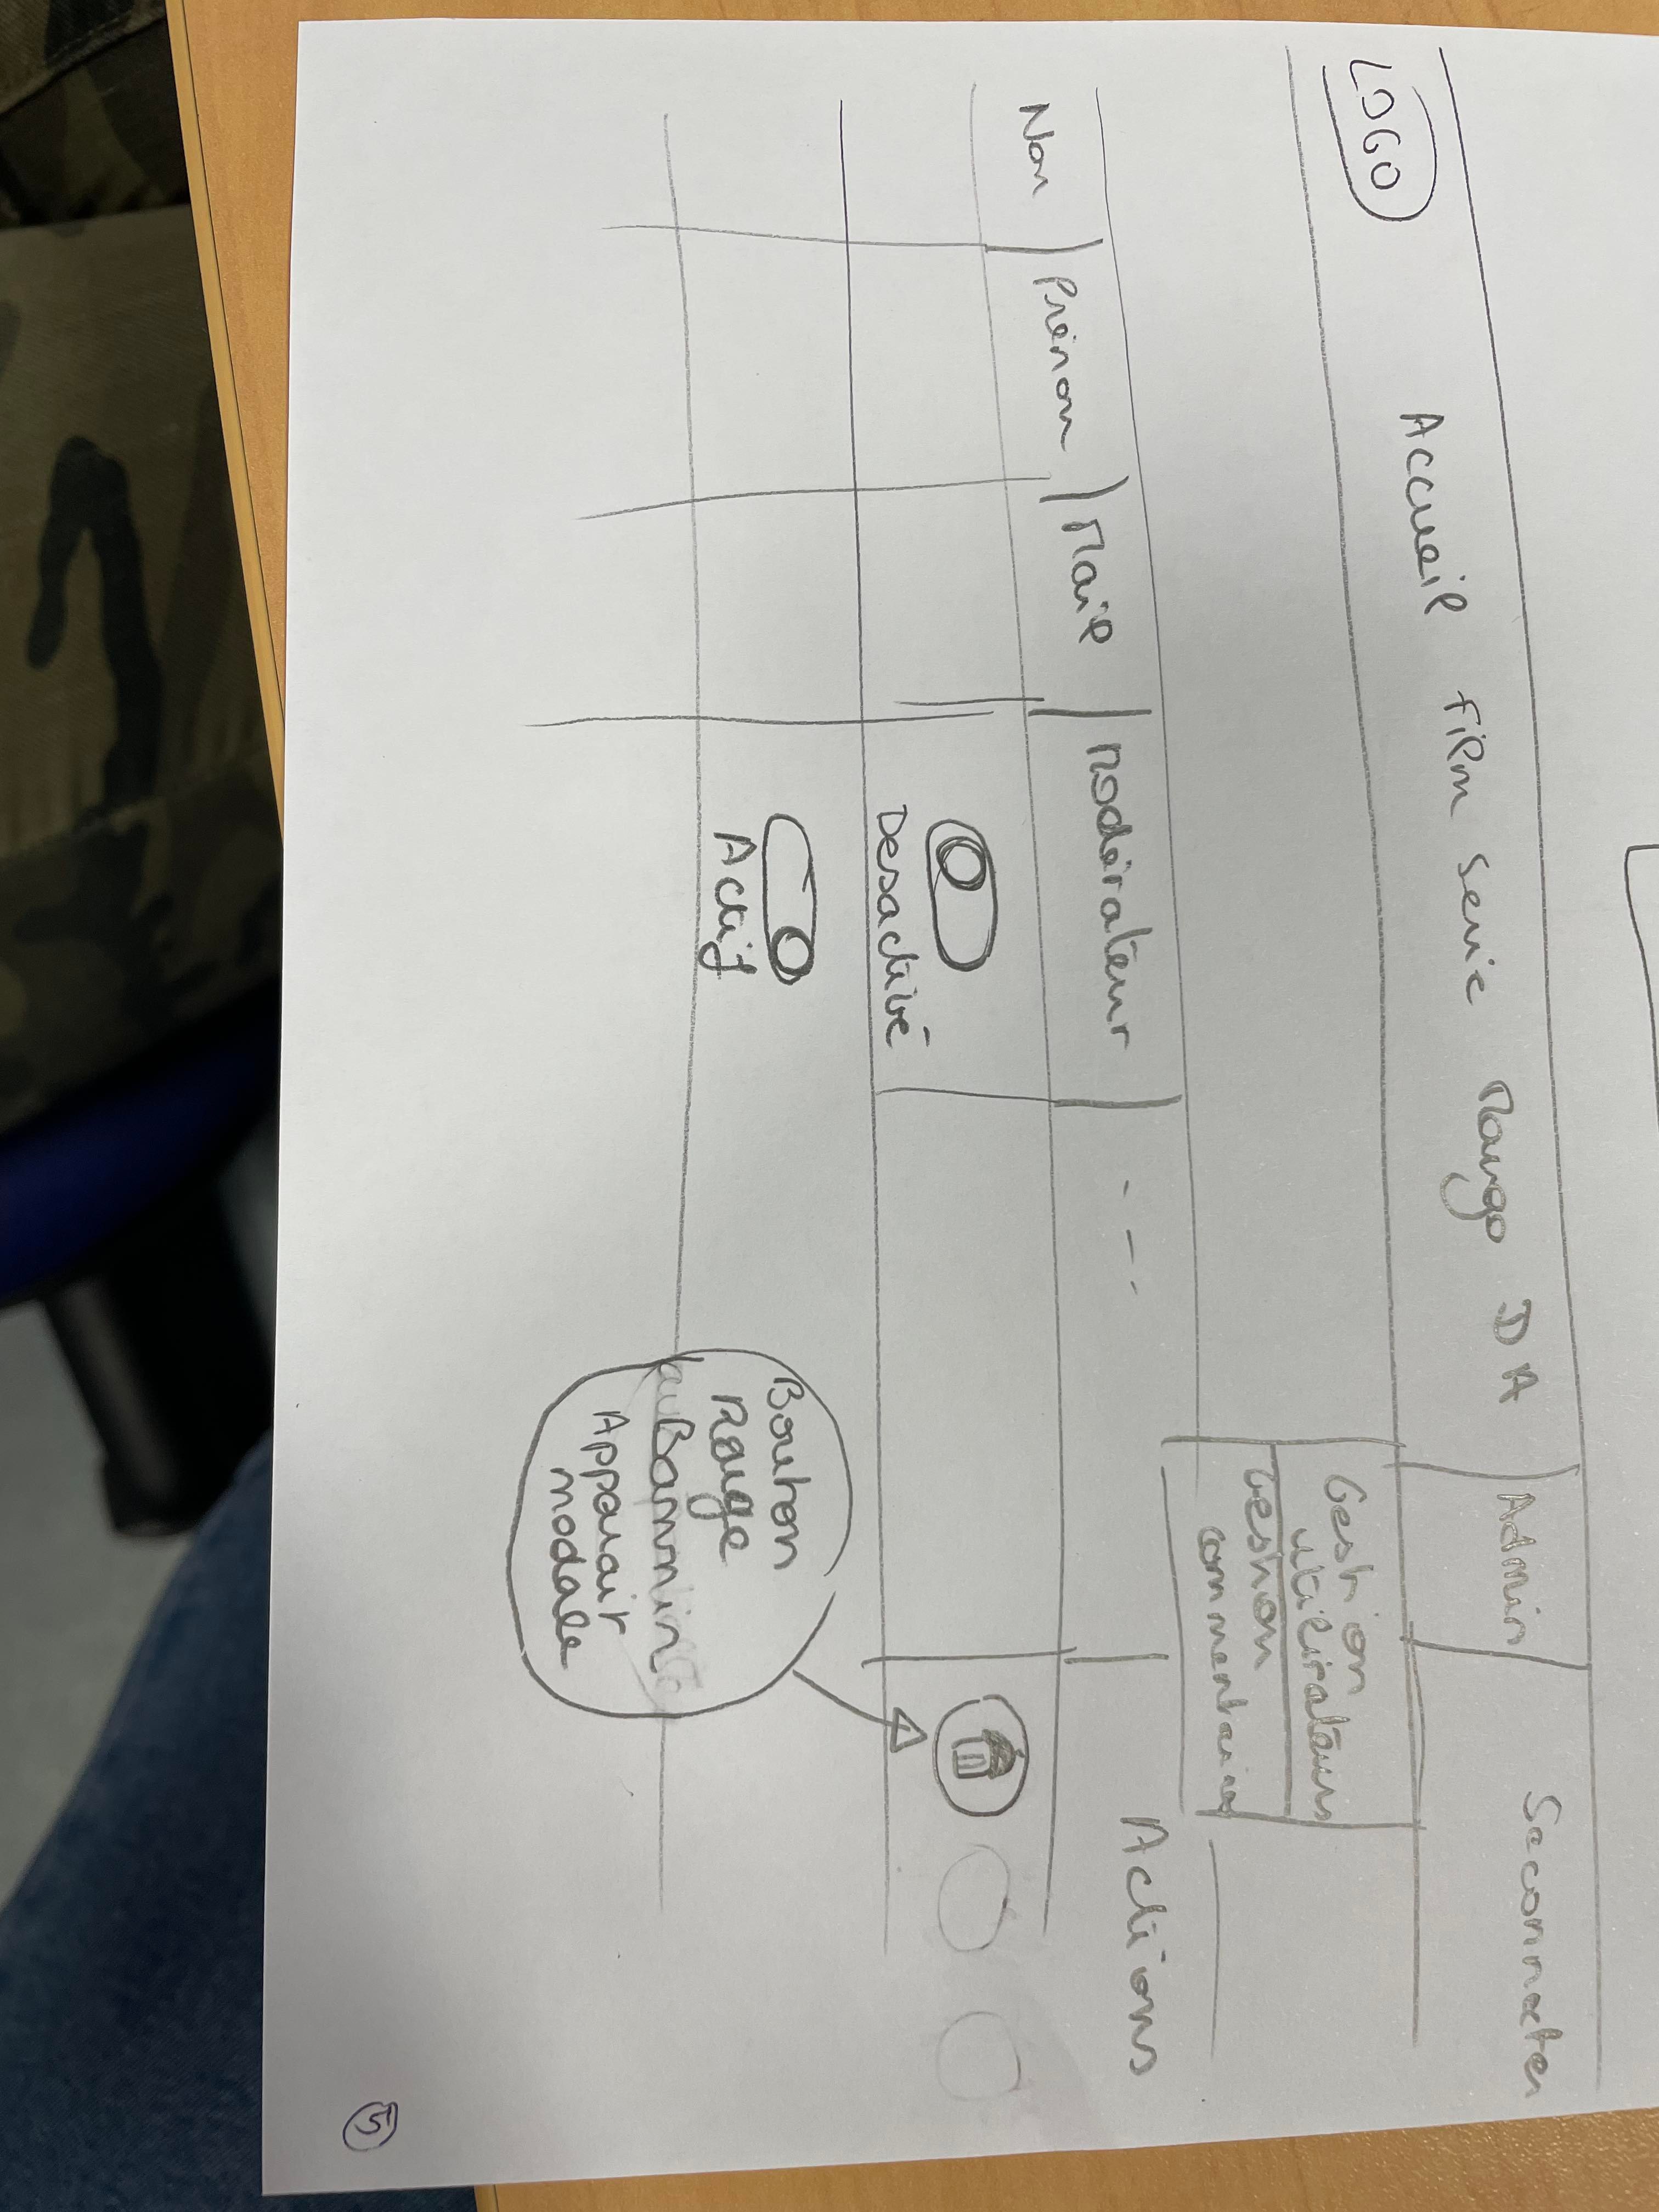 LOGO Accueil film serie Manga DA Admin Se connecter
Gestion
utilisateurs
Gestion
commentaires
Nom Prénom Mail Modérateur - - - Actions
Desactivé
Actif
Bouton
Rouge
Bannir
Apparait
modale
5